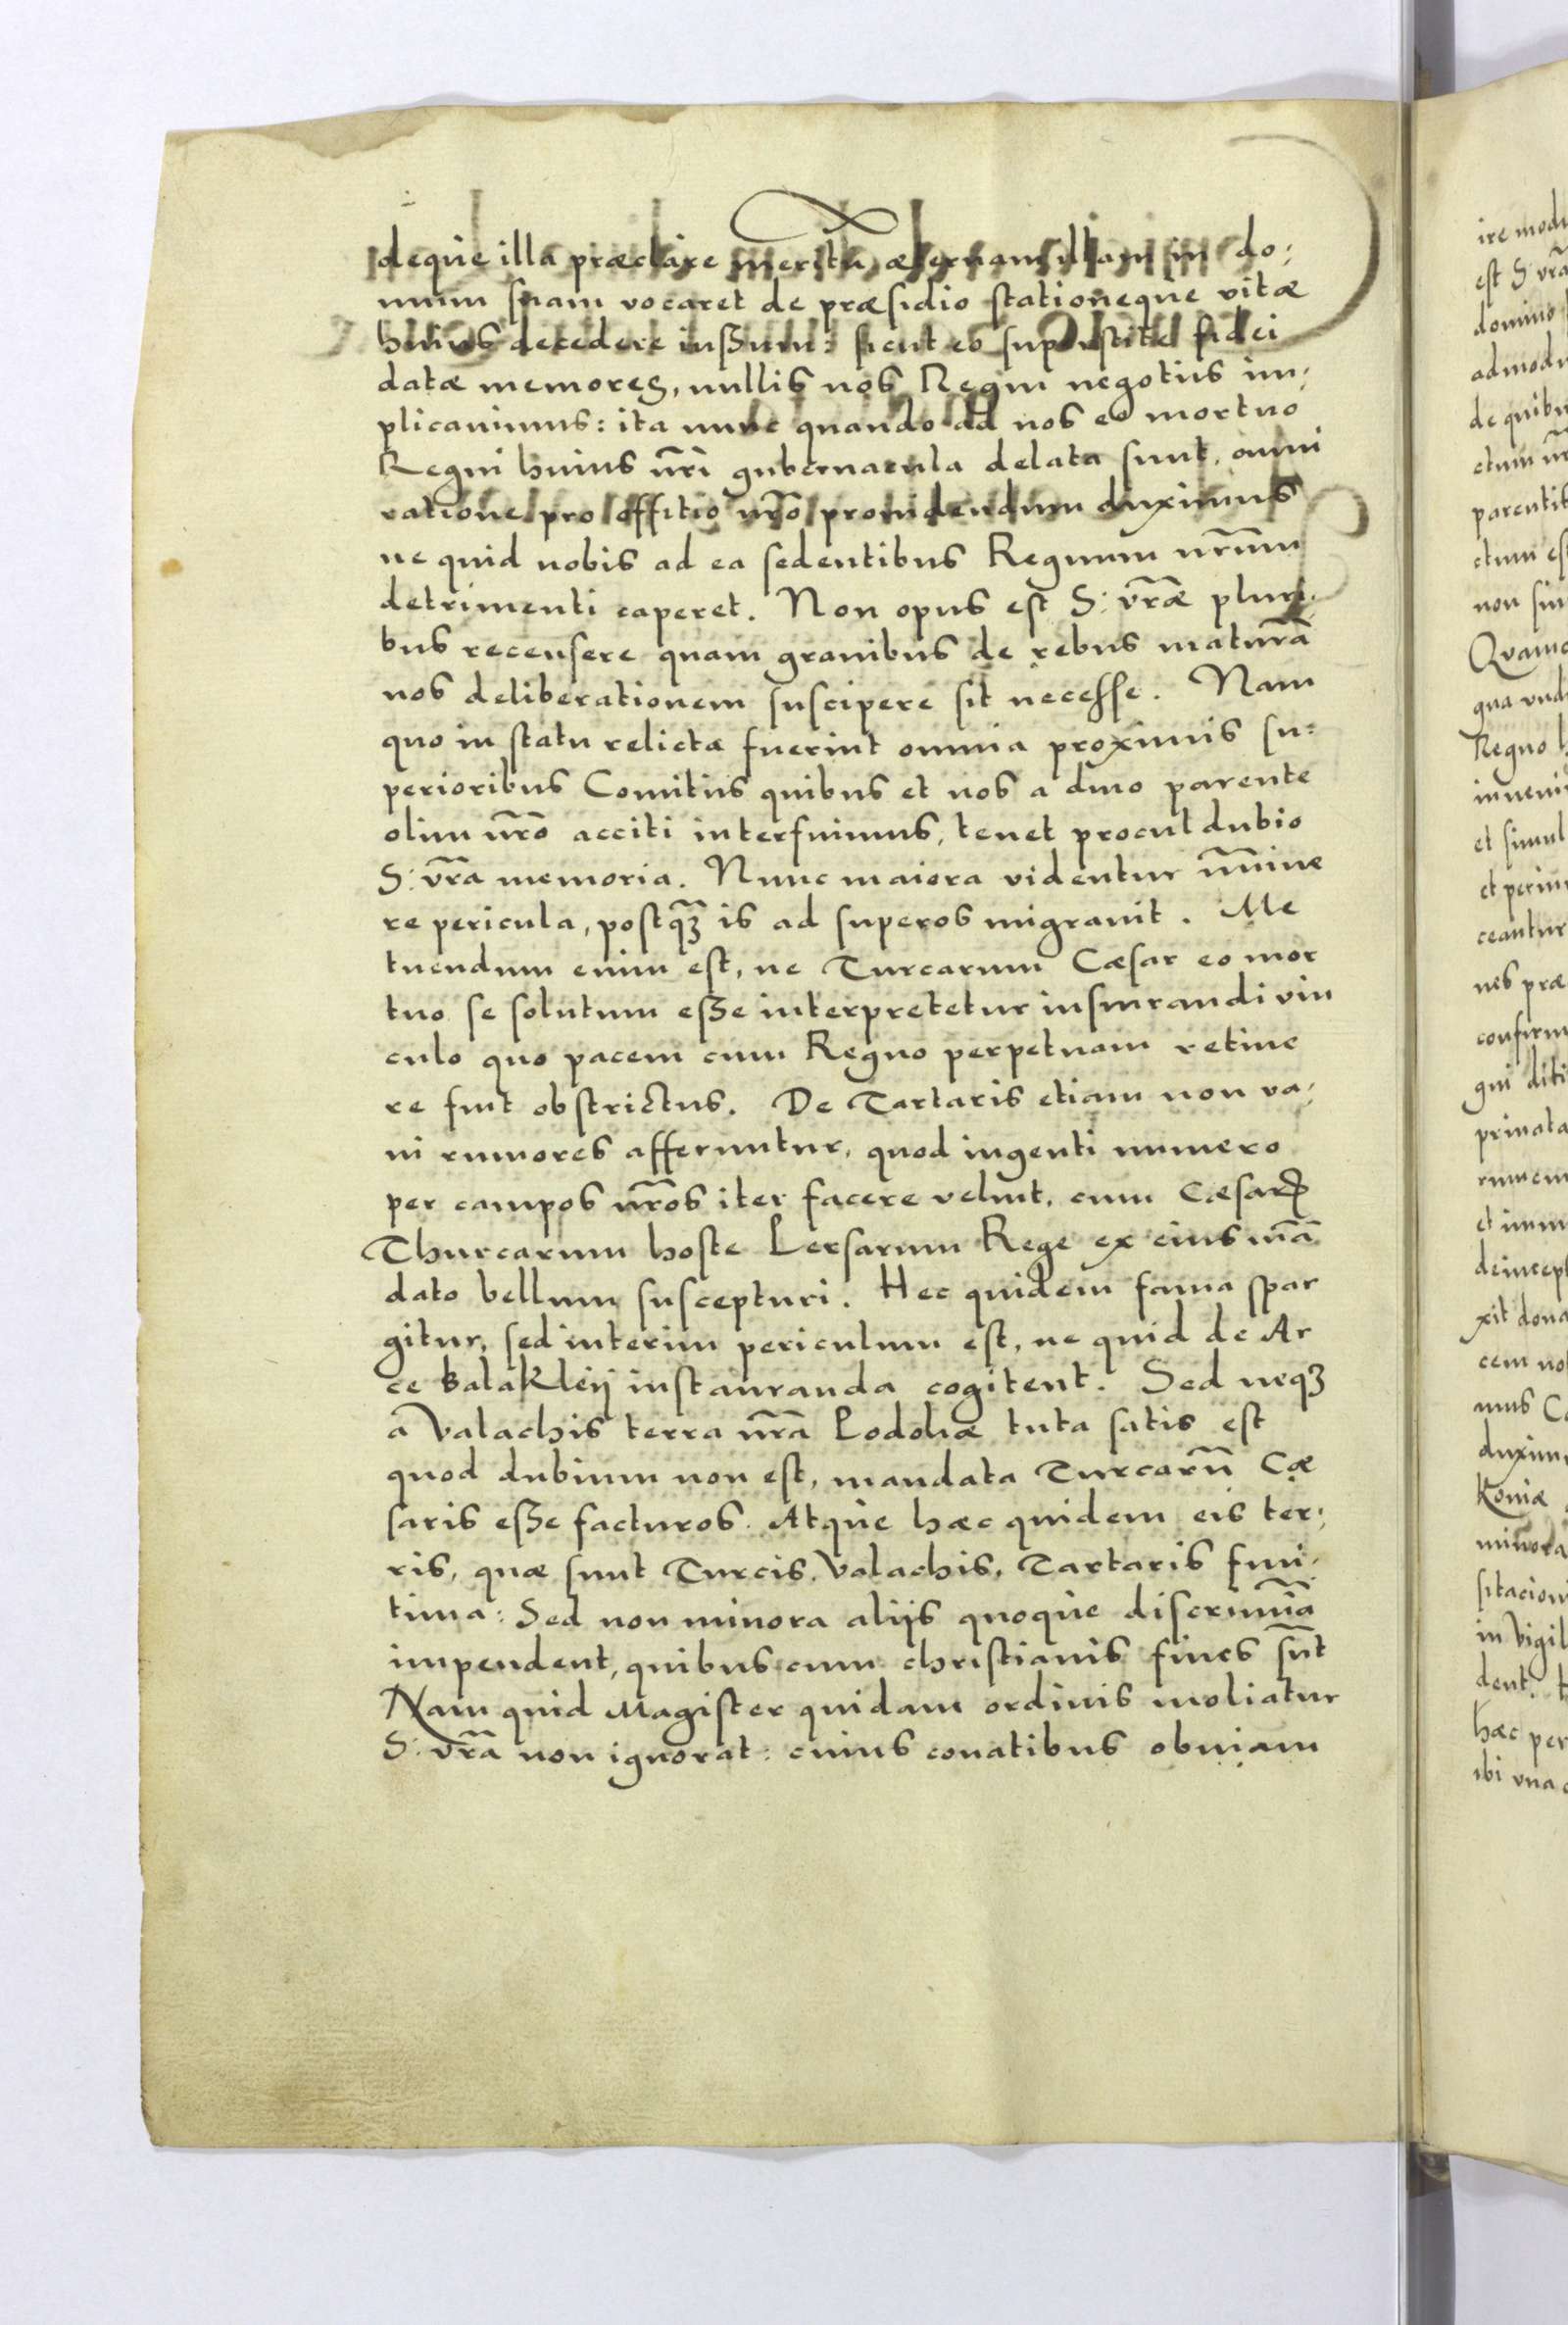 deque illa præclare meritū, æternam illam in do,
mum suam vocaret de præsidio stationeque vitæ
huius decedere iussum: sicut eo superstite fidei
datæ memores, nullis nos Regni negotiis im,
plicauimus: ita nunc quando ad nos eo mortuo
Regni huius nr̃i gubernacula delata sunt, omni
ratione pro offitio nr̃o prouidendum duximus
ne quid nobis ad ea sedentibus Regnum nr̃um
detrimenti caperet. Non opus est S: vr̃æ pluri,
bus recensere quam grauibus de rebus maturã
nos deliberationem suscipere sit necesse. Nam
quo in statu relicta fuerint omnia proximis su=
perioribus Comitiis quibus et nos a diuo parente
olim nr̃o acciti interfuimus, tenet procul dubio
S: vr̃a memoria. Nunc maiora videntur im̃ine
re pericula, postqꝫ is ad superos migrauit. Me
tuendum enim est, ne Turcarum Cæsar eo mor
tuo se solutum esse interpretetur iusiurandi vin
culo quo pacem cum Regno perpetuam retine
re fuit obstrictus. De Tartaris etiam non va,
ni rumores afferuntur, quod ingenti numero
per campos nr̃os iter facere velint, cum Cæsarꝭ
Thurcarum hoste Persarum Rege ex eius mã
dato bellum suscepturi. Hec quidem fama spar
gitur, sed interim periculum est, ne quid de Ar
ce Balakleij instauranda cogitent. Sed neqꝫ
a Valachis terra nr̃a Podoliæ tuta satis est
quod dubium non est, mandata Turcarũ Cæ
saris esse facturos. Atque hæc quidem eis ter,
ris, quæ sunt Turcis, Valachis, Tartaris fini,
tima: Sed non minora aliis quoque discrimĩa
impendent, quibus cum christianis fines sũt
Nam quid Magister quidam ordinis moliatur
S: vr̃a non ignorat: cuius conatibus obuiam
ire modu
est S: vr̃a
domino
admodu
de quibu
ctum nr̃
parentib
ctum es
non sin
Qvamo
qua vnd
Regno h
inueni
et simul
et periu
ceantur
nes præ
confirm
qui diti
priuata
et imm
deincept
xit dona
cem nob
mus Co
duximu
Koniæ
minora
sitacion
in Vigil
dent.
hæc per
ibi vna